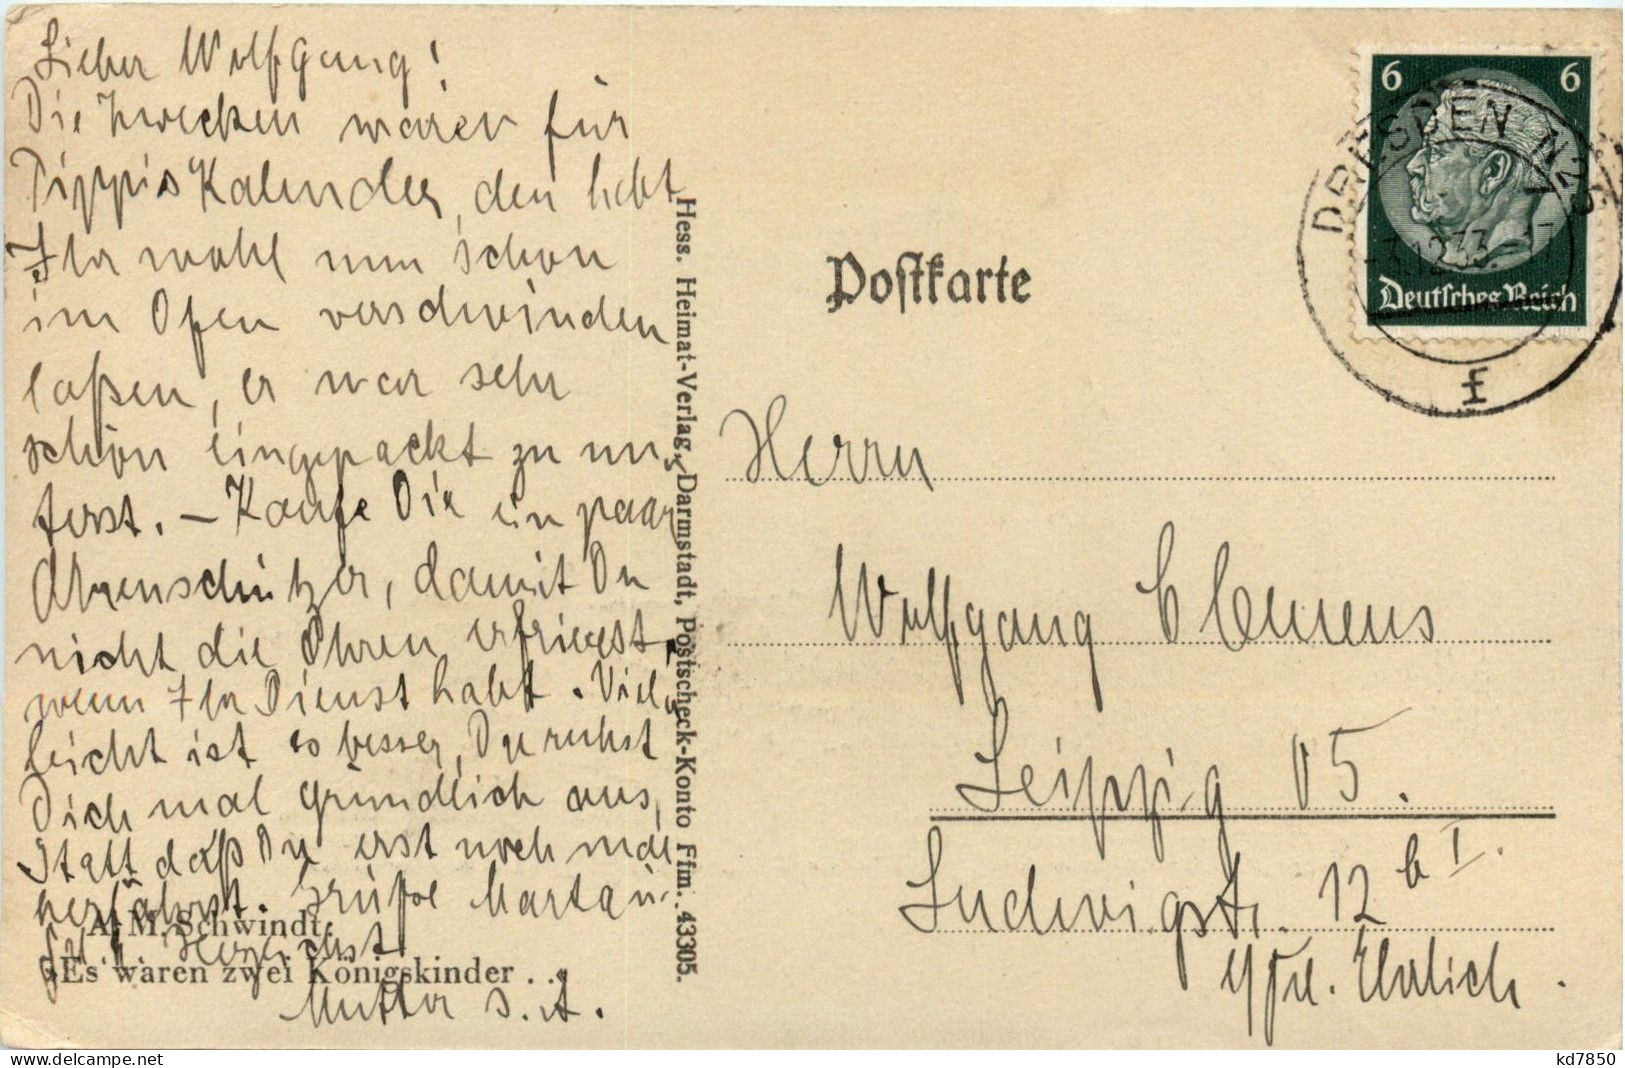 Lieber Wolfgang!
Die Zwecken waren für
Pippis Kalender, den habt
Ihr wohl nun schon
im Ofen verschwinden
laßen, er war sehr
schön eingepackt zu un-
terst. – Kaufe Dir ein paar
Ohrenschützer, damit Du
nicht die Ohren erfrierst,
wenn Ihr Dienst habt. Viel-
leicht ist es besser, Du ruhst
Dich mal gründlich aus,
statt daß Du erst noch mal
herfährst. Grüße Marta u.
Herzlichst
Mutter s. A.
A. M. Schwindt:
„Es waren zwei Königskinder . . .
Hess. Heimat-Verlag, Darmstadt, Postscheck-Konto Ffm. 43305.
Postkarte
6 6
Deutsches Reich
DRESDEN N25
-3.12.33.-17
Herrn
Wolfgang Clemens
Leipzig O5.
Ludwigstr. 12 b I.
b/Frl. Ehrlich.
kd7850